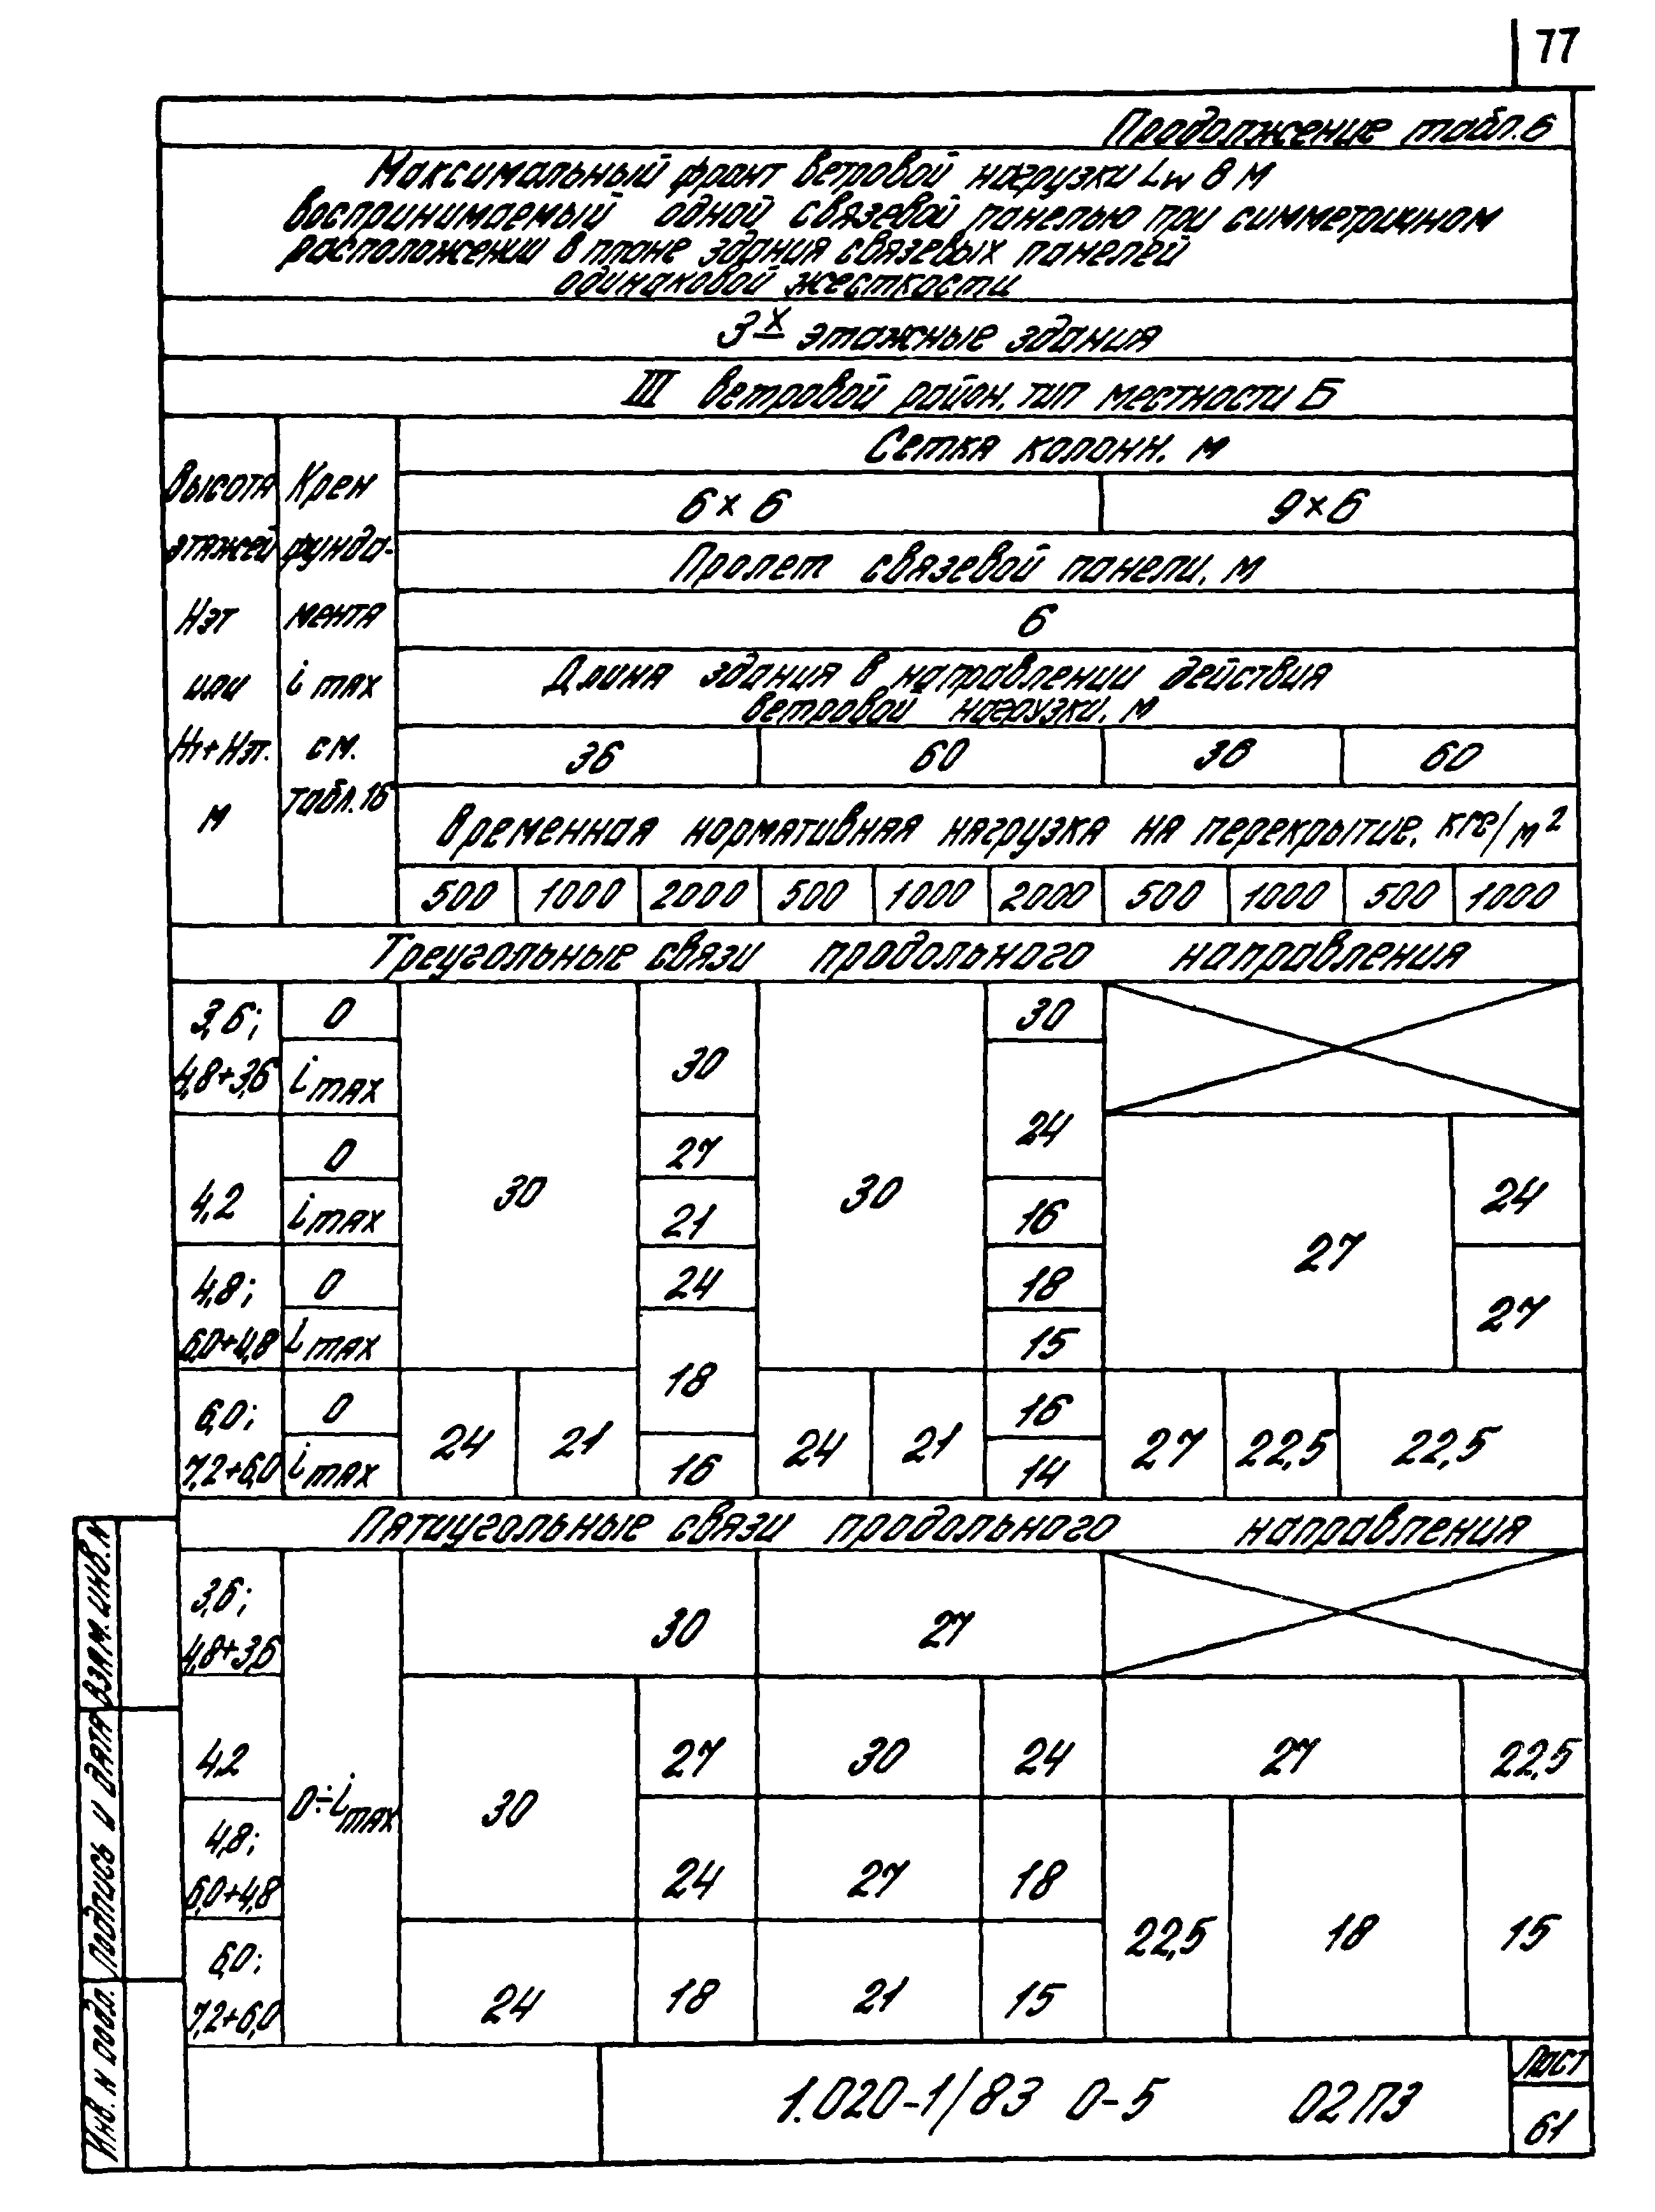 77
Продолжение табл.6
Максимальный фронт ветровой нагрузки Lw в м
воспринимаемый одной связевой панелью при симметричном
расположении в плане здания связевых панелей
одинаковой жесткости
3х этажные здания
III ветровой район, тип местности Б
Высота
этажей
Нэт
или
Н1+Нэт.
м
Крен
фунда-
мента
i max
см.
табл.16
Сетка колонн, м
6×6 9×6
Пролет связевой панели, м
6
Длина здания в направлении действия
ветровой нагрузки, м
36 60 36 60
Временная нормативная нагрузка на перекрытие, кгс/м2
500 1000 2000 500 1000 2000 500 1000 500 1000
Треугольные связи продольного направления
3,6; 0 30
4,8+3,6 i max 30
24
0 27
30 30
4,2 i max 21 16 24
27
4,8; 0 24 18
6,0+4,8 i max 15 27
18
6,0; 0 16
24 21 24 21 27 22,5 22,5
7,2+6,0 i max 16 14
Пятиугольные связи продольного направления
3,6;
4,8+3,6 30 27
4,2 27 30 24 27 22,5
0÷i max 30
4,8;
6,0+4,8 24 27 18
22,5 18 15
6,0;
7,2+6,0 24 18 21 15
Взам. инв. N
Подпись и дата
Инв. N подл.
1.020-1/83 0-5 02ПЗ
Лист
61